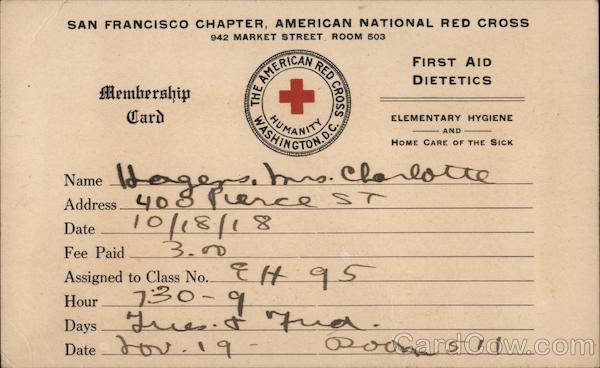 SAN FRANCISCO CHAPTER, AMERICAN NATIONAL RED CROSS
942 MARKET STREET, ROOM 503
Membership
Card
THE AMERICAN RED CROSS
HUMANITY
WASHINGTON, D.C.
FIRST AID
DIETETICS
ELEMENTARY HYGIENE
AND
HOME CARE OF THE SICK
Name Hagens, Mrs. Charlotte
Address 400 Pierce ST
Date 10/18/18
Fee Paid 3.00
Assigned to Class No. EH 95
Hour 7:30-9
Days Tues. &
Date Nov. 19 - Room 511
CardCow.com